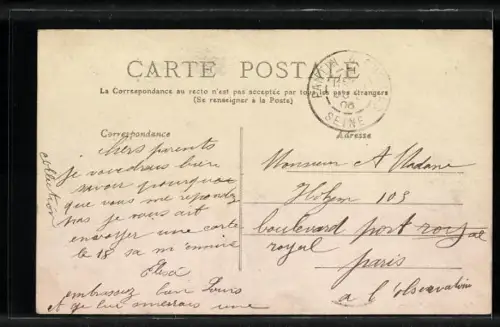 CARTE POSTALE
La Correspondance au recto n'est pas acceptée par tous les pays étrangers
(Se renseigner à la Poste)
PANTIN
08
SEINE
Correspondance
Adresse
chers parents
je voudrais bien
savoir pourquoi
que vous me repondez
pas je vous ait
envoyer une carte
le 18 sa m'ennuie
Elisa
embrissez bien Louis
collection
Monsieur A Madane
103
boulevard port royal
royal
paris
a l'observatoire